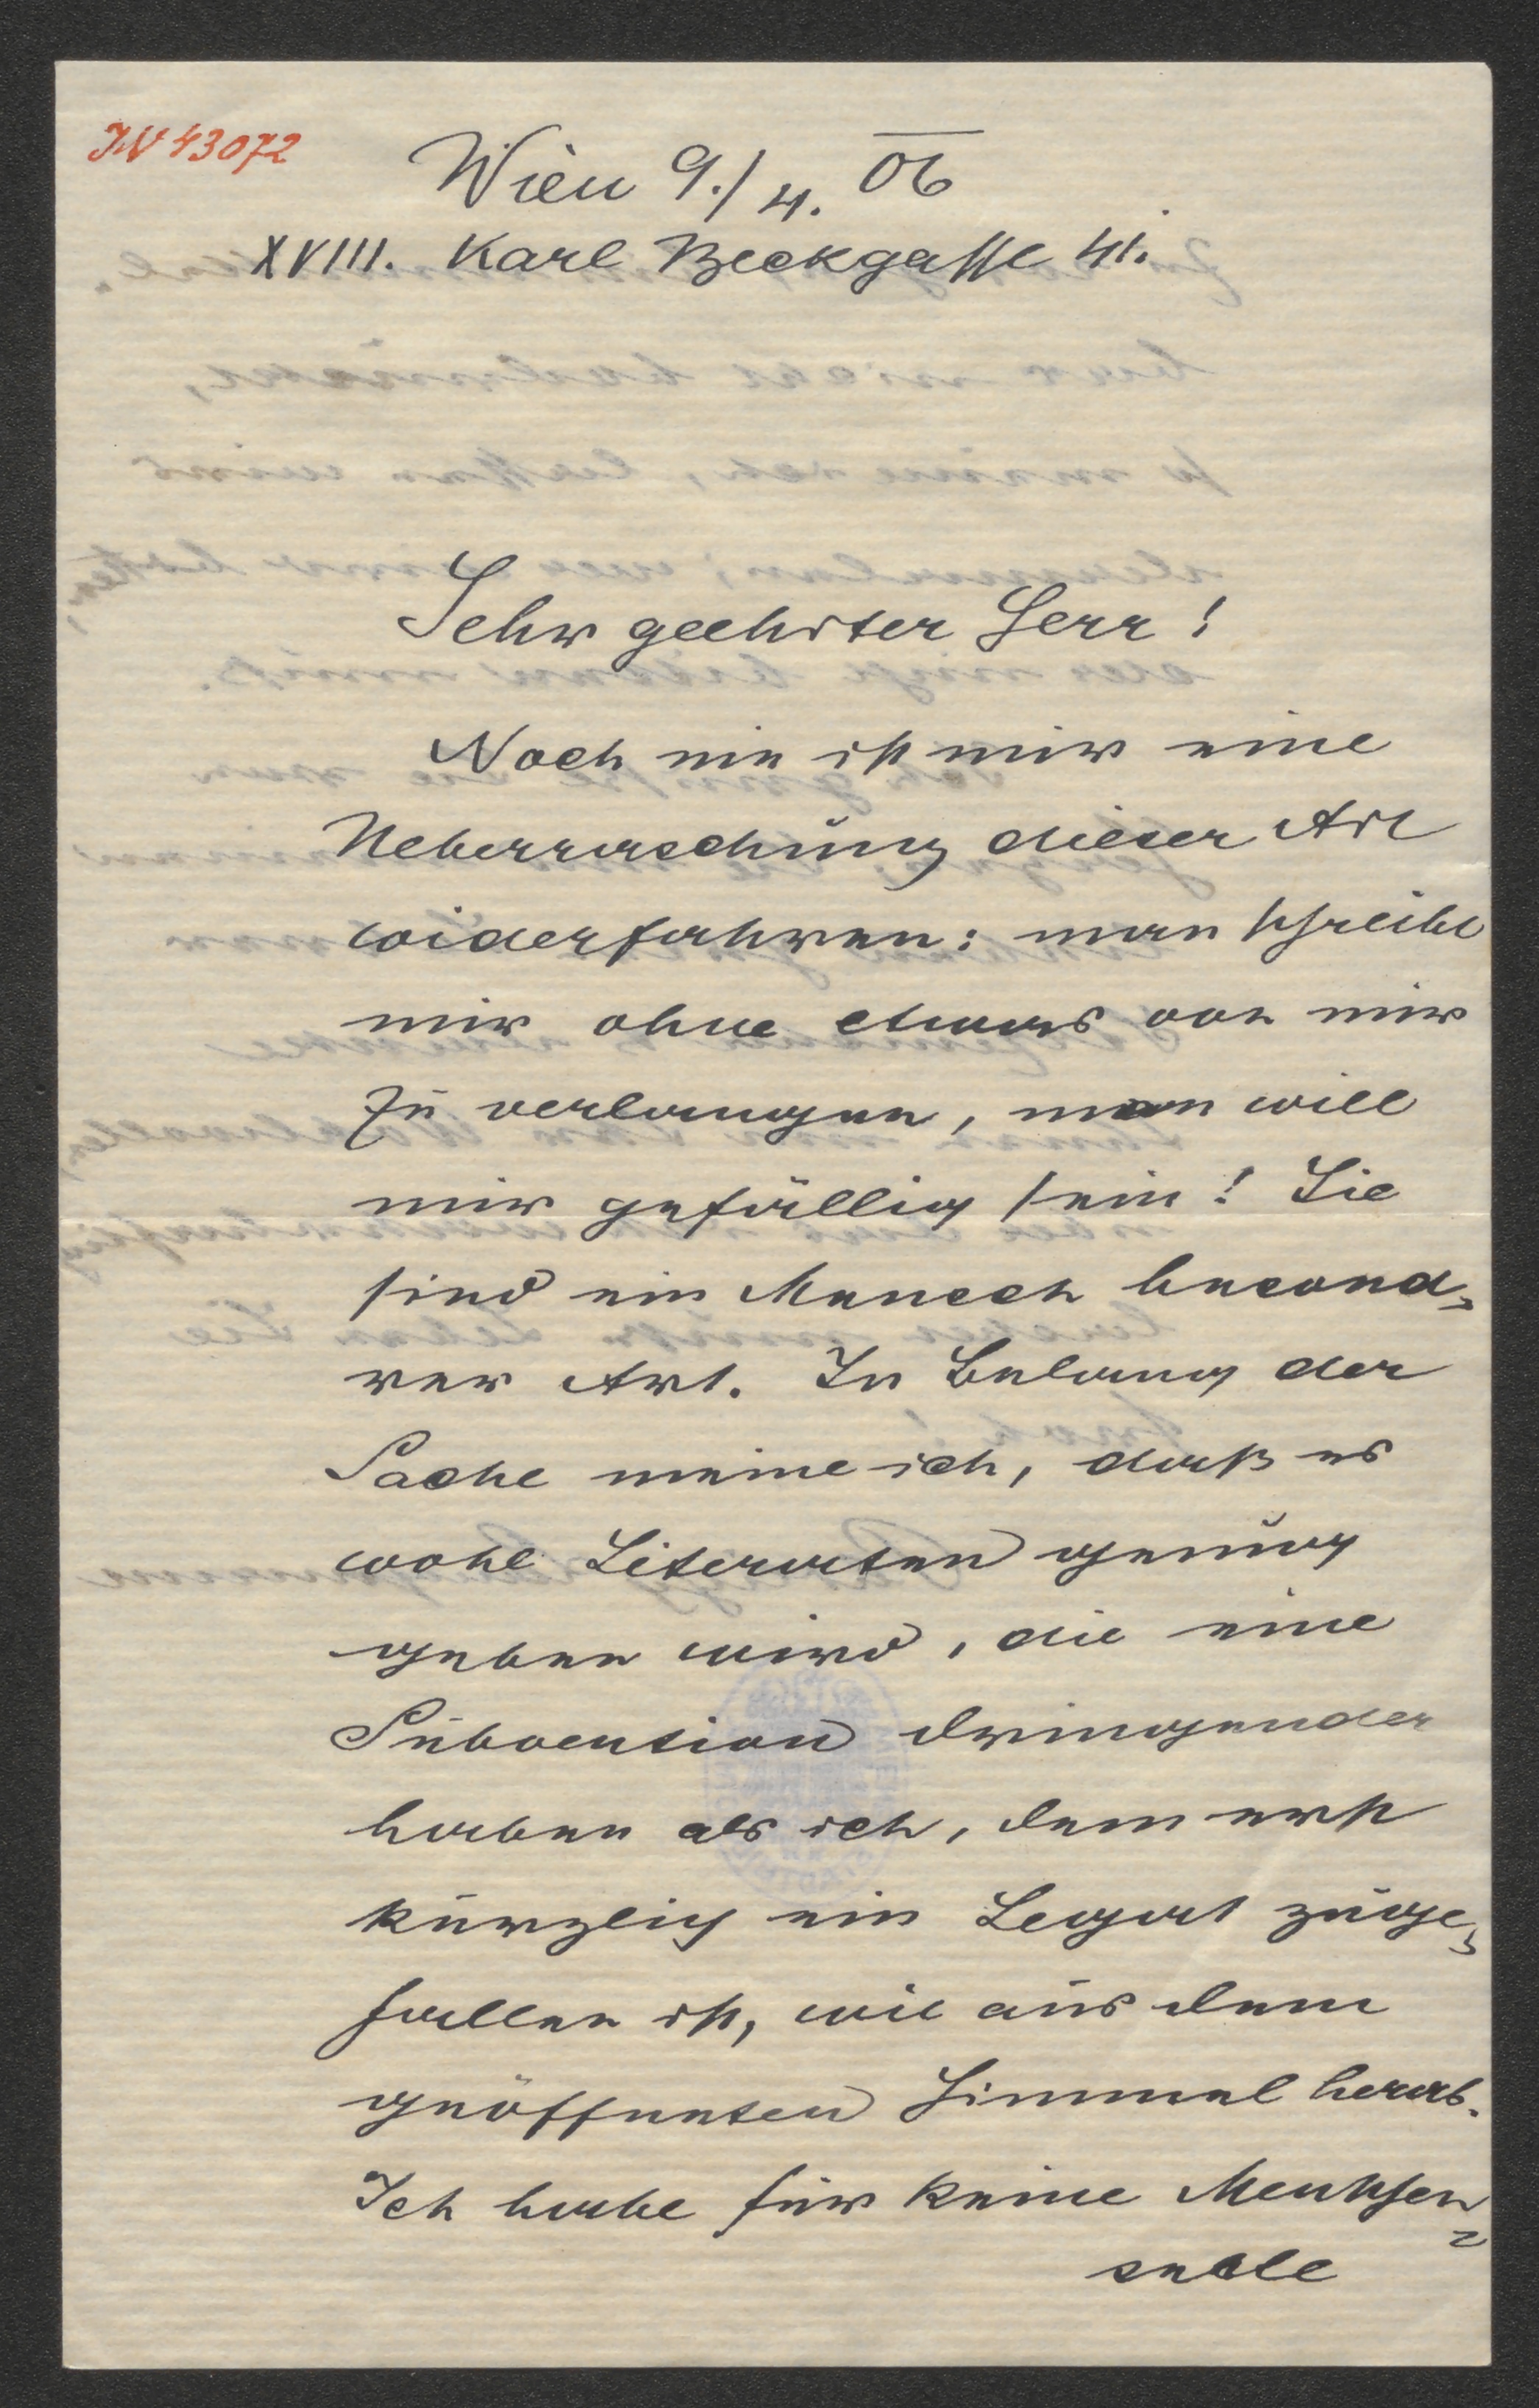 IN 43072
Wien 9./4. 06
XVIII. Karl Beckgasse 41.
Sehr geehrter Herr!
Noch nie ist mir eine
Ueberraschung dieser Art
widerfahren: man schreibt
mir ohne etwas von mir
zu verlangen, man will
mir gefällig sein! Sie
sind ein Mensch besond-
rer Art. In Belang der
Sache meine ich, daß es
wohl Literaten genug
geben wird, die eine
Subvention dringender
haben als ich, dem erst
kürzlich ein Legat zuge-
fallen ist, wie aus dem
geöffneten Himmel herab.
Ich habe für keine Menschen-
seele